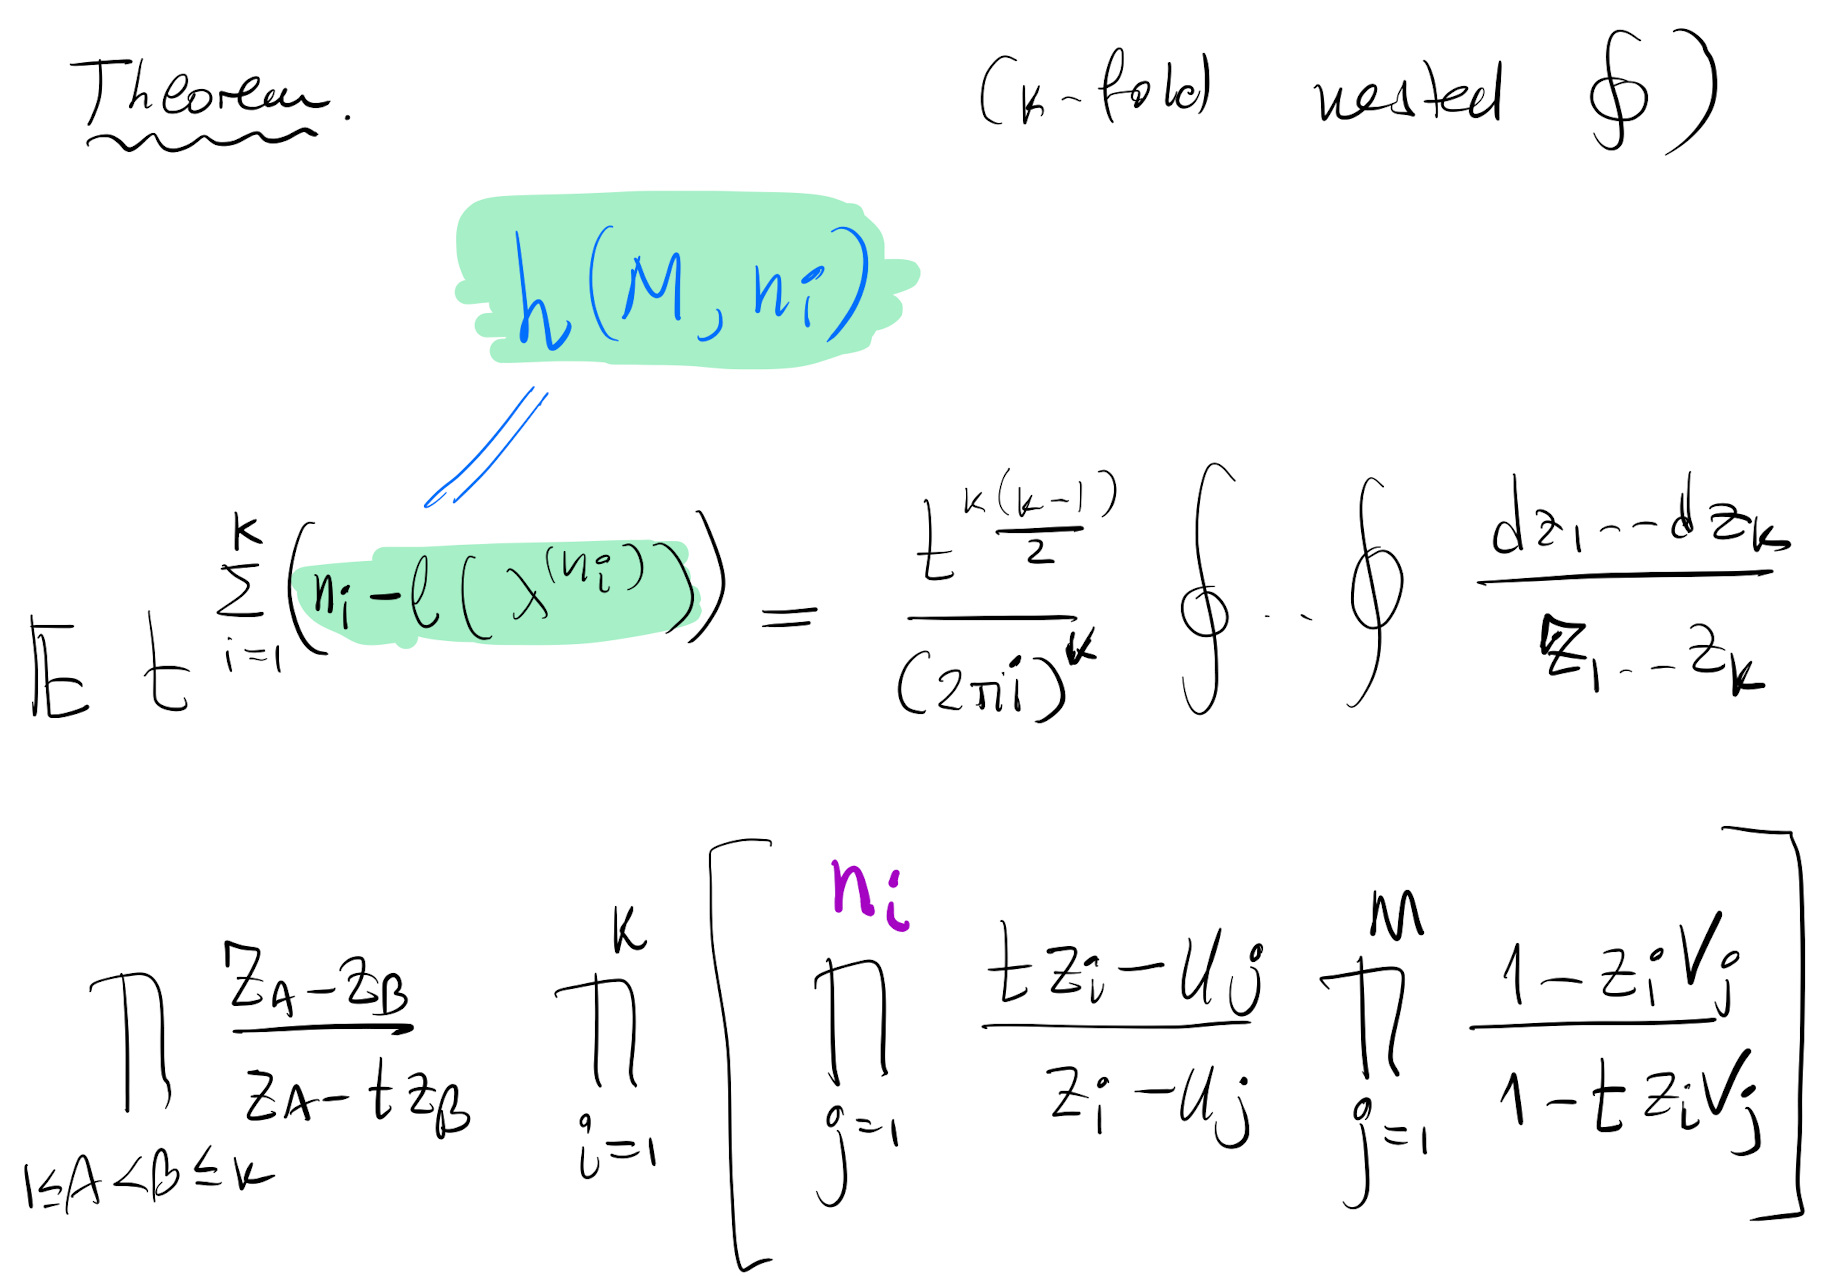 Theorem. (k-fold nested ∮)
h(M, n_i)
𝔼 t^{\sum_{i=1}^{k} (n_i - ℓ(λ^{(n_i)}))} = \frac{t^{\frac{k(k-1)}{2}}}{(2πi)^k} ∮ ·· ∮ \frac{dz_1 ·· dz_k}{z_1 ·· z_k}
∏_{1≤A<B≤k} \frac{z_A - z_B}{z_A - t z_B} ∏_{i=1}^{k} [ ∏_{j=1}^{n_i} \frac{t z_i - u_j}{z_i - u_j} ∏_{j=1}^{M} \frac{1 - z_i v_j}{1 - t z_i v_j} ]